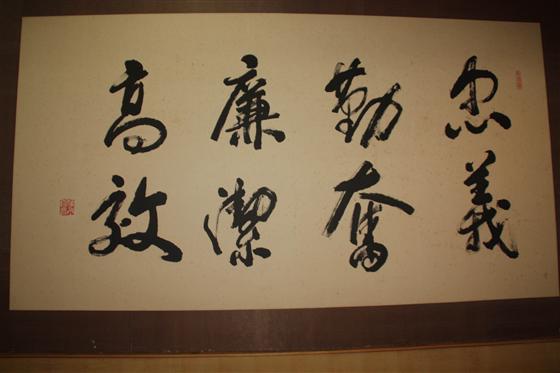 忠義
勤奮
廉潔
高效